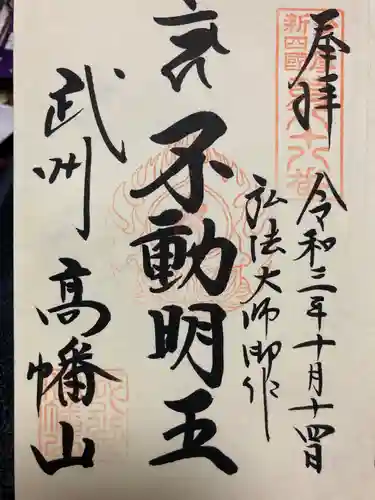 奉拝
令和三年十月十四日
弘法大師御作
不動明王
武州 高幡山
新四國